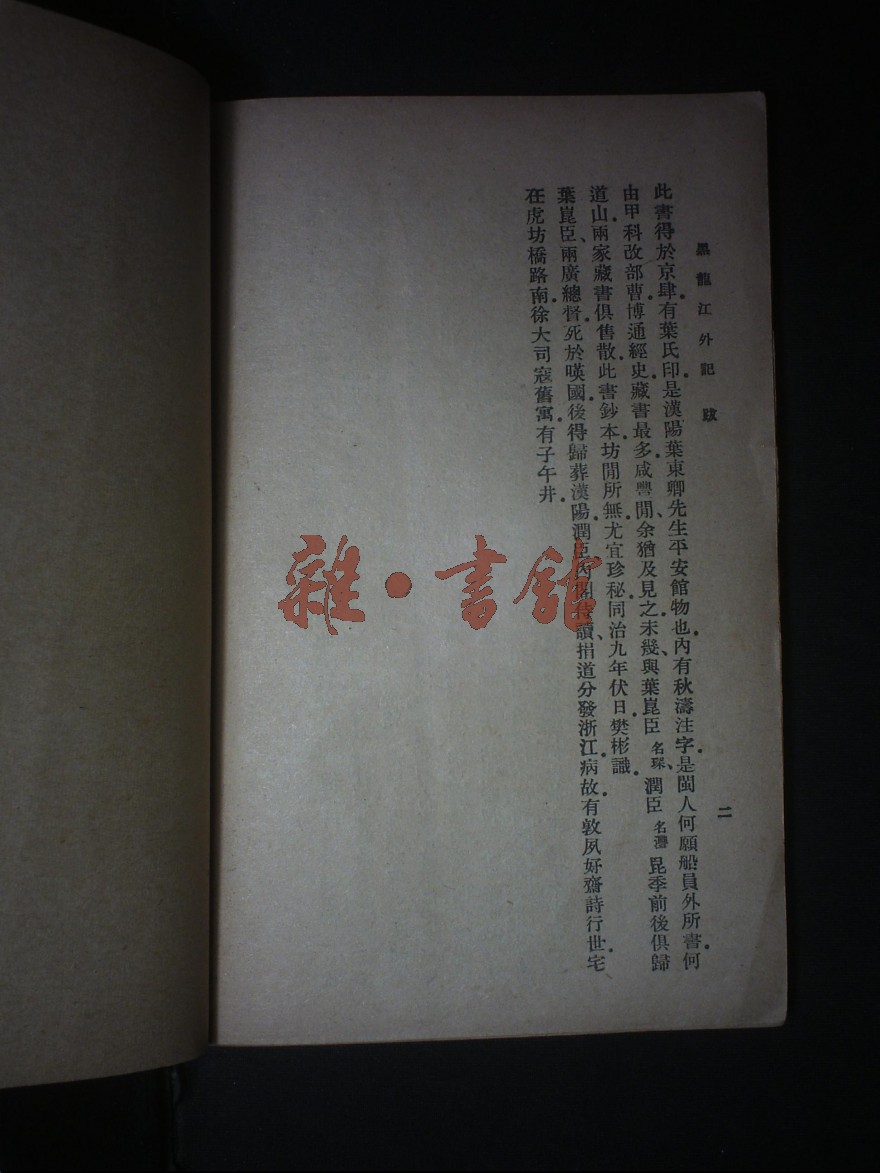 黑龍江外記 跋 二
此書得於京肆.有葉氏印.是漢陽葉東卿先生平安館物也.內有秋濤注字.是閩人何願船員外所書.何
由甲科改部曹.博通經史.藏書最多.咸豐閒、余猶及見之.未幾、與葉崑臣名琛、潤臣名灃昆季前後俱歸
道山.兩家藏書俱售散.此書鈔本.坊閒所無.尤宜珍秘.同治九年伏日.樊彬識.
葉崑臣、兩廣總督.死於暎國.後得歸葬漢陽.潤臣內閣侍讀、捐道分發浙江.病故.有敦夙好齋詩行世.宅
在虎坊橋路南.徐大司寇舊寓.有子午井.
雜·書館